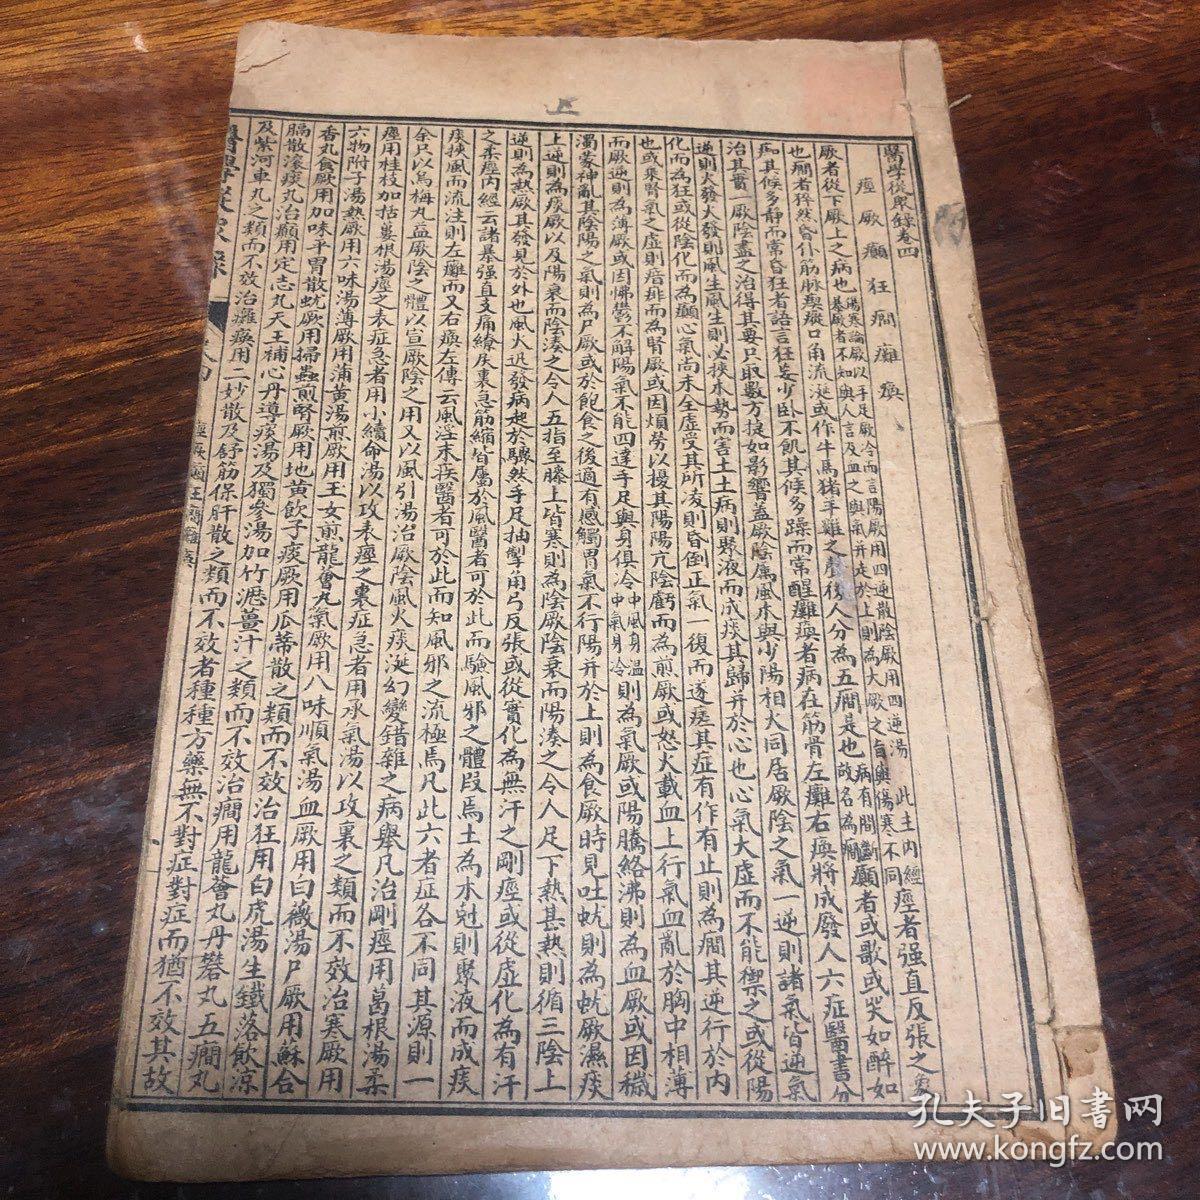 上
醫學從眾錄卷四
痙厥癲狂癇癱瘓
痙者强直反張之象
厥者從下厥上之病也傷寒論厥以手足厥冷而言陽厥用四逆散陰厥用四逆湯此主內經
暴厥者不知與人言及血之與氣并走於上則為大厥之旨與傷寒不同
癲者或歌或哭如醉如
痴其候多靜而常昏狂者語言狂妄少臥不飢其候多躁而常醒癱瘓者病在筋骨左癱右瘓將成廢人六症醫書分
也癇者猝然昏仆筋脈瘈瘲口角流涎或作牛馬猪羊雞之聲後人分為五癇是也病有間斷故名為癇
治其實一厥陰盡之治得其要只取數方捷如影響蓋厥陰屬風木與少陽相火同居厥陰之氣一逆則諸氣皆逆氣
逆則火發火發則風生風生則必挾木勢而害土土病則聚液而成痰其歸并於心也心氣大虛而不能禦之或從陽
化而為狂或從陰化而為癲心氣尚未全虛受其所凌則昏倒正氣一復而遂瘥其症有作有止則為癇其逆行於內
也或乘腎氣之虛則瘖痱而為腎厥或因煩勞以擾其陽陽亢陰虧而為煎厥或怒火載血上行氣血亂於胸中相薄
而厥逆則為薄厥或因怫鬱不解陽氣不能四達手足與身俱冷中風身溫中氣身冷則為氣厥或陽騰絡沸則為血厥或因穢
濁蒙神亂其陰陽之氣則為尸厥或於飽食之後適有感觸胃氣不行陽并於上則為食厥時見吐蚘則為蚘厥濕痰
上逆則為痰厥以及陽衰而陰湊之令人五指至膝上皆寒則為陰厥陰衰而陽湊之令人足下熱甚熱則循三陰上
逆則為熱厥其發見於外也風火迅發病起於驟然手足抽掣角弓反張或從實化為無汗之剛痙或從虛化為有汗
之柔痙內經云諸暴强直支痛緛戾裏急筋縮皆屬於風醫者可於此而驗風邪之體段焉土為木尅則聚液而成痰
痰挾風而流注則左癱而又右瘓左傳云風淫末疾醫者可於此而知風邪之流極焉凡此六者症各不同其源則一
余只以烏梅丸益厥陰之體以宣厥陰之用又以風引湯治厥陰風火痰涎幻變錯雜之病舉凡治剛痙用葛根湯柔
痙用桂枝加栝蔞根湯痙之表症急者用小續命湯以攻表痙之裏症急者用承氣湯以攻裏之類而不效治寒厥用
六物附子湯熱厥用六味湯薄厥用蒲黃湯煎厥用玉女煎龍薈丸氣厥用八味順氣湯血厥用白薇湯尸厥用蘇合
香丸食厥用加味平胃散蚘厥用掃蟲煎腎厥用地黃飲子痰厥用瓜蒂散之類而不效治狂用白虎湯生鐵落飲涼
膈散滾痰丸治癲用定志丸天王補心丹導痰湯及獨參湯加竹瀝薑汁之類而不效治癇用龍薈丸丹礬丸五癇丸
及紫河車丸之類而不效治癱瘓用二妙散及舒筋保肝散之類而不效者種種方藥無不對症對症而猶不效其故
醫學從眾錄
卷四
痙厥癲狂癇癱瘓
孔夫子旧书网
www.kongfz.com